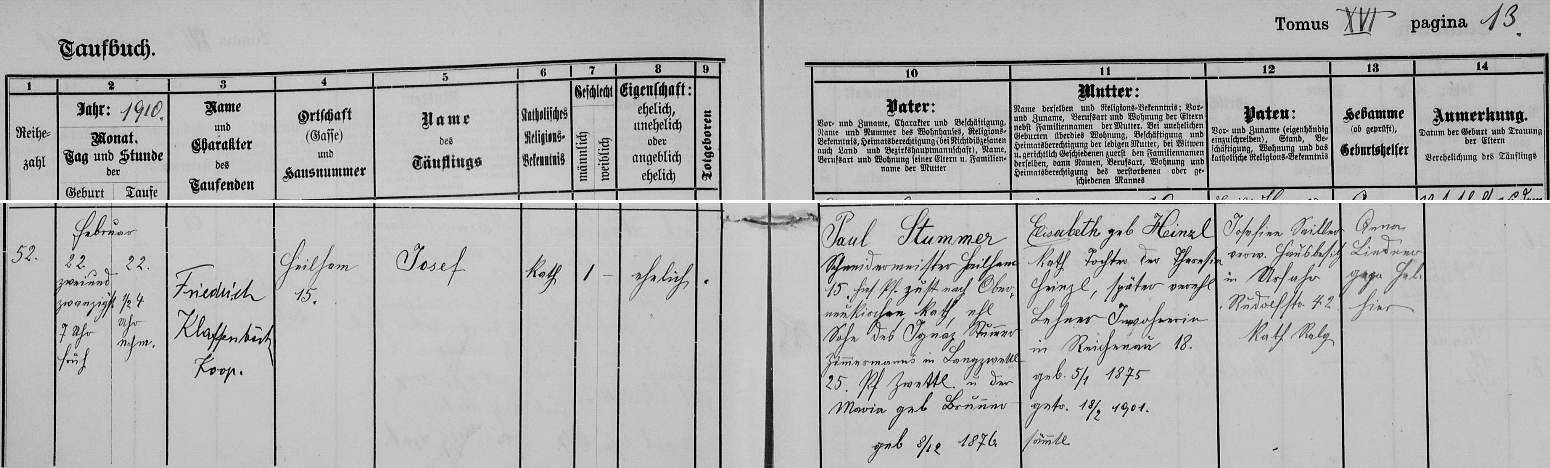 Taufbuch.
Tomus XVI pagina 13.
1
2
3
4
5
6
7
8
9
10
11
12
13
14
Reihe-
zahl
Jahr: 1910.
Monat.
Tag und Stunde
der
Geburt
Taufe
Name
und
Charakter
des
Taufenden
Ortschaft
(Gasse)
und
Hausnummer
Name
des
Täuflings
Katholisches
Religions-
Bekenntnis
Geschlecht
männlich
weiblich
Eigenschaft:
ehelich,
unehelich
oder
angeblich
ehelich
Totgeboren
Vater:
Vor- und Zuname, Charakter und Beschäftigung,
Name und Nummer des Wohnhauses, Religions-
Bekenntnis, Heimatsberechtigung (bei Nichtdiözesanen
auch Land und Bezirkshauptmannschaft), Name,
Berufsart und Wohnung seiner Eltern u. Familien-
name der Mutter
Mutter:
Name derselben und Religions-Bekenntnis; Vor-
und Zuname, Berufsart und Wohnung der Eltern
nebst Familiennamen der Mutter. Bei unehelichen
Geburten überdies Wohnung, Beschäftigung und
Heimatsberechtigung der ledigen Mutter, bei Witwen
u. gerichtlich Geschiedenen zuerst den Familiennamen
derselben, dann Namen, Berufsart, Wohnung und
Heimatsberechtigung des verstorbenen oder ge-
schiedenen Mannes
Paten:
Vor- und Zuname (eigenhändig
einzuschreiben), Stand, Be-
schäftigung, Wohnung und das
katholische Religions-Bekenntnis
Hebamme
(ob geprüft),
Geburtshelfer
Anmerkung.
Datum der Geburt und Trauung
der Eltern
Verehelichung des Täuflings
52.
Februar
22.
zweiund
zwanzigst
7 Uhr
früh
22.
1/2 4
Uhr
nchm.
Friedrich
Klaffenböck
Koop.
Heilham
15.
Josef
kath
1
–
ehelich
.
Paul Stummer
Schneidermeister Heilham
15. hies Pf. zust nach Ober-
neukirchen kath, ehl
Sohn des Ignaz Stummer
Zimmermanns in Langzwettl
25. Pf Zwettl u der
Maria geb Brunner
geb 8/12 1876
Elisabeth geb Heinzl
kath Tochter der Theresia
Heinzl, später verehl
Lehner Inwohnerin
in Reichenau 18.
geb. 5/1 1875
getr. 18/2 1901.
Josefine Sailler
verw. Hausbesitz
in Urfahr
Rudolfstr. 42
kath Relg
Anna
Lindner
gepr Heb.
hier